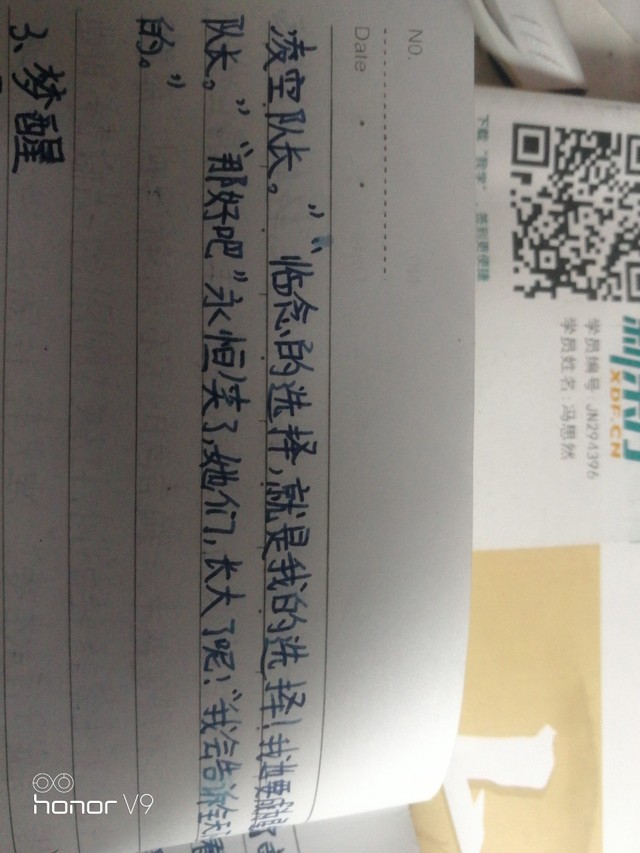 NO.
Date
凌空队长。”“临念的选择，就是我的选择！我进要
队长。”“那好吧”永恒笑了，她们，长大了呢！“我会告诉
的。”
3、梦醒
下载
签到更便捷
XDF.CN
学员编号：JN294396
学员姓名：冯思然
honor V9